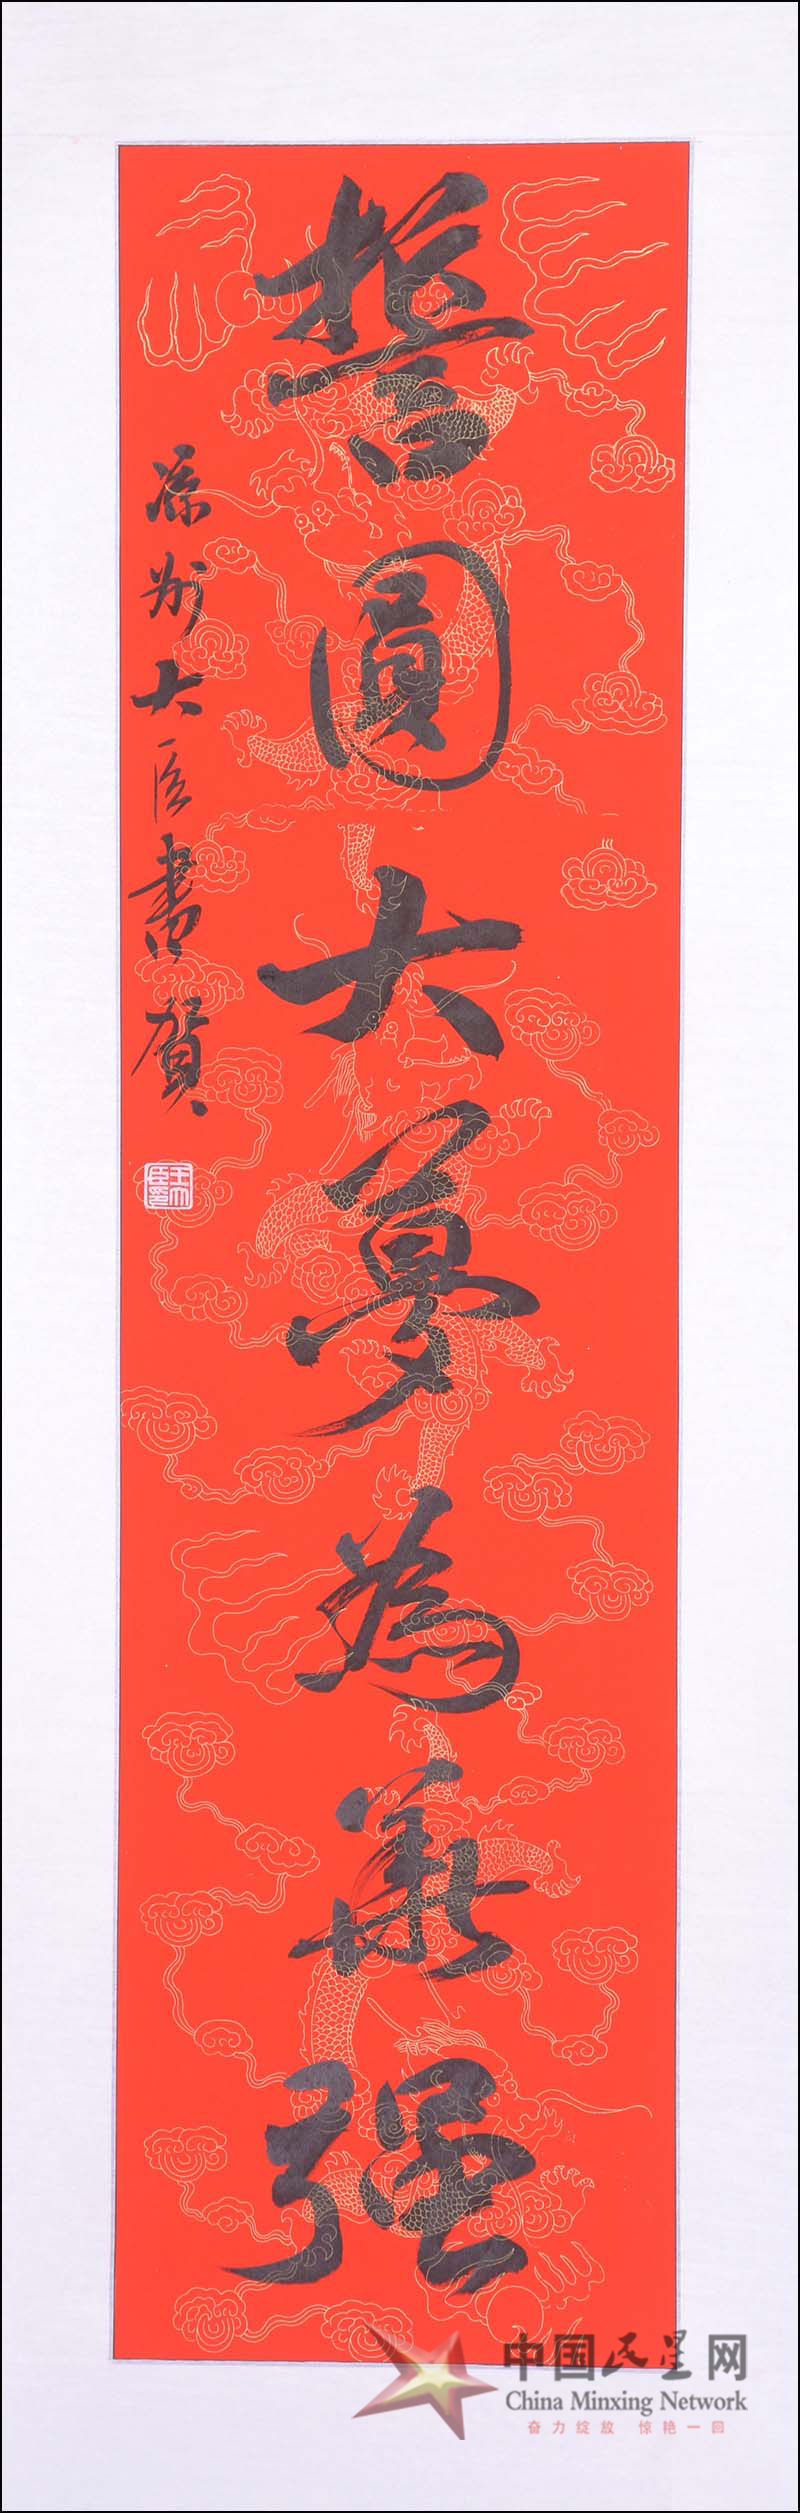 誓圓大夢為華強
涿州大臣書賀
王大臣印
中国民星网
China Minxing Network
奋力绽放 惊艳一回